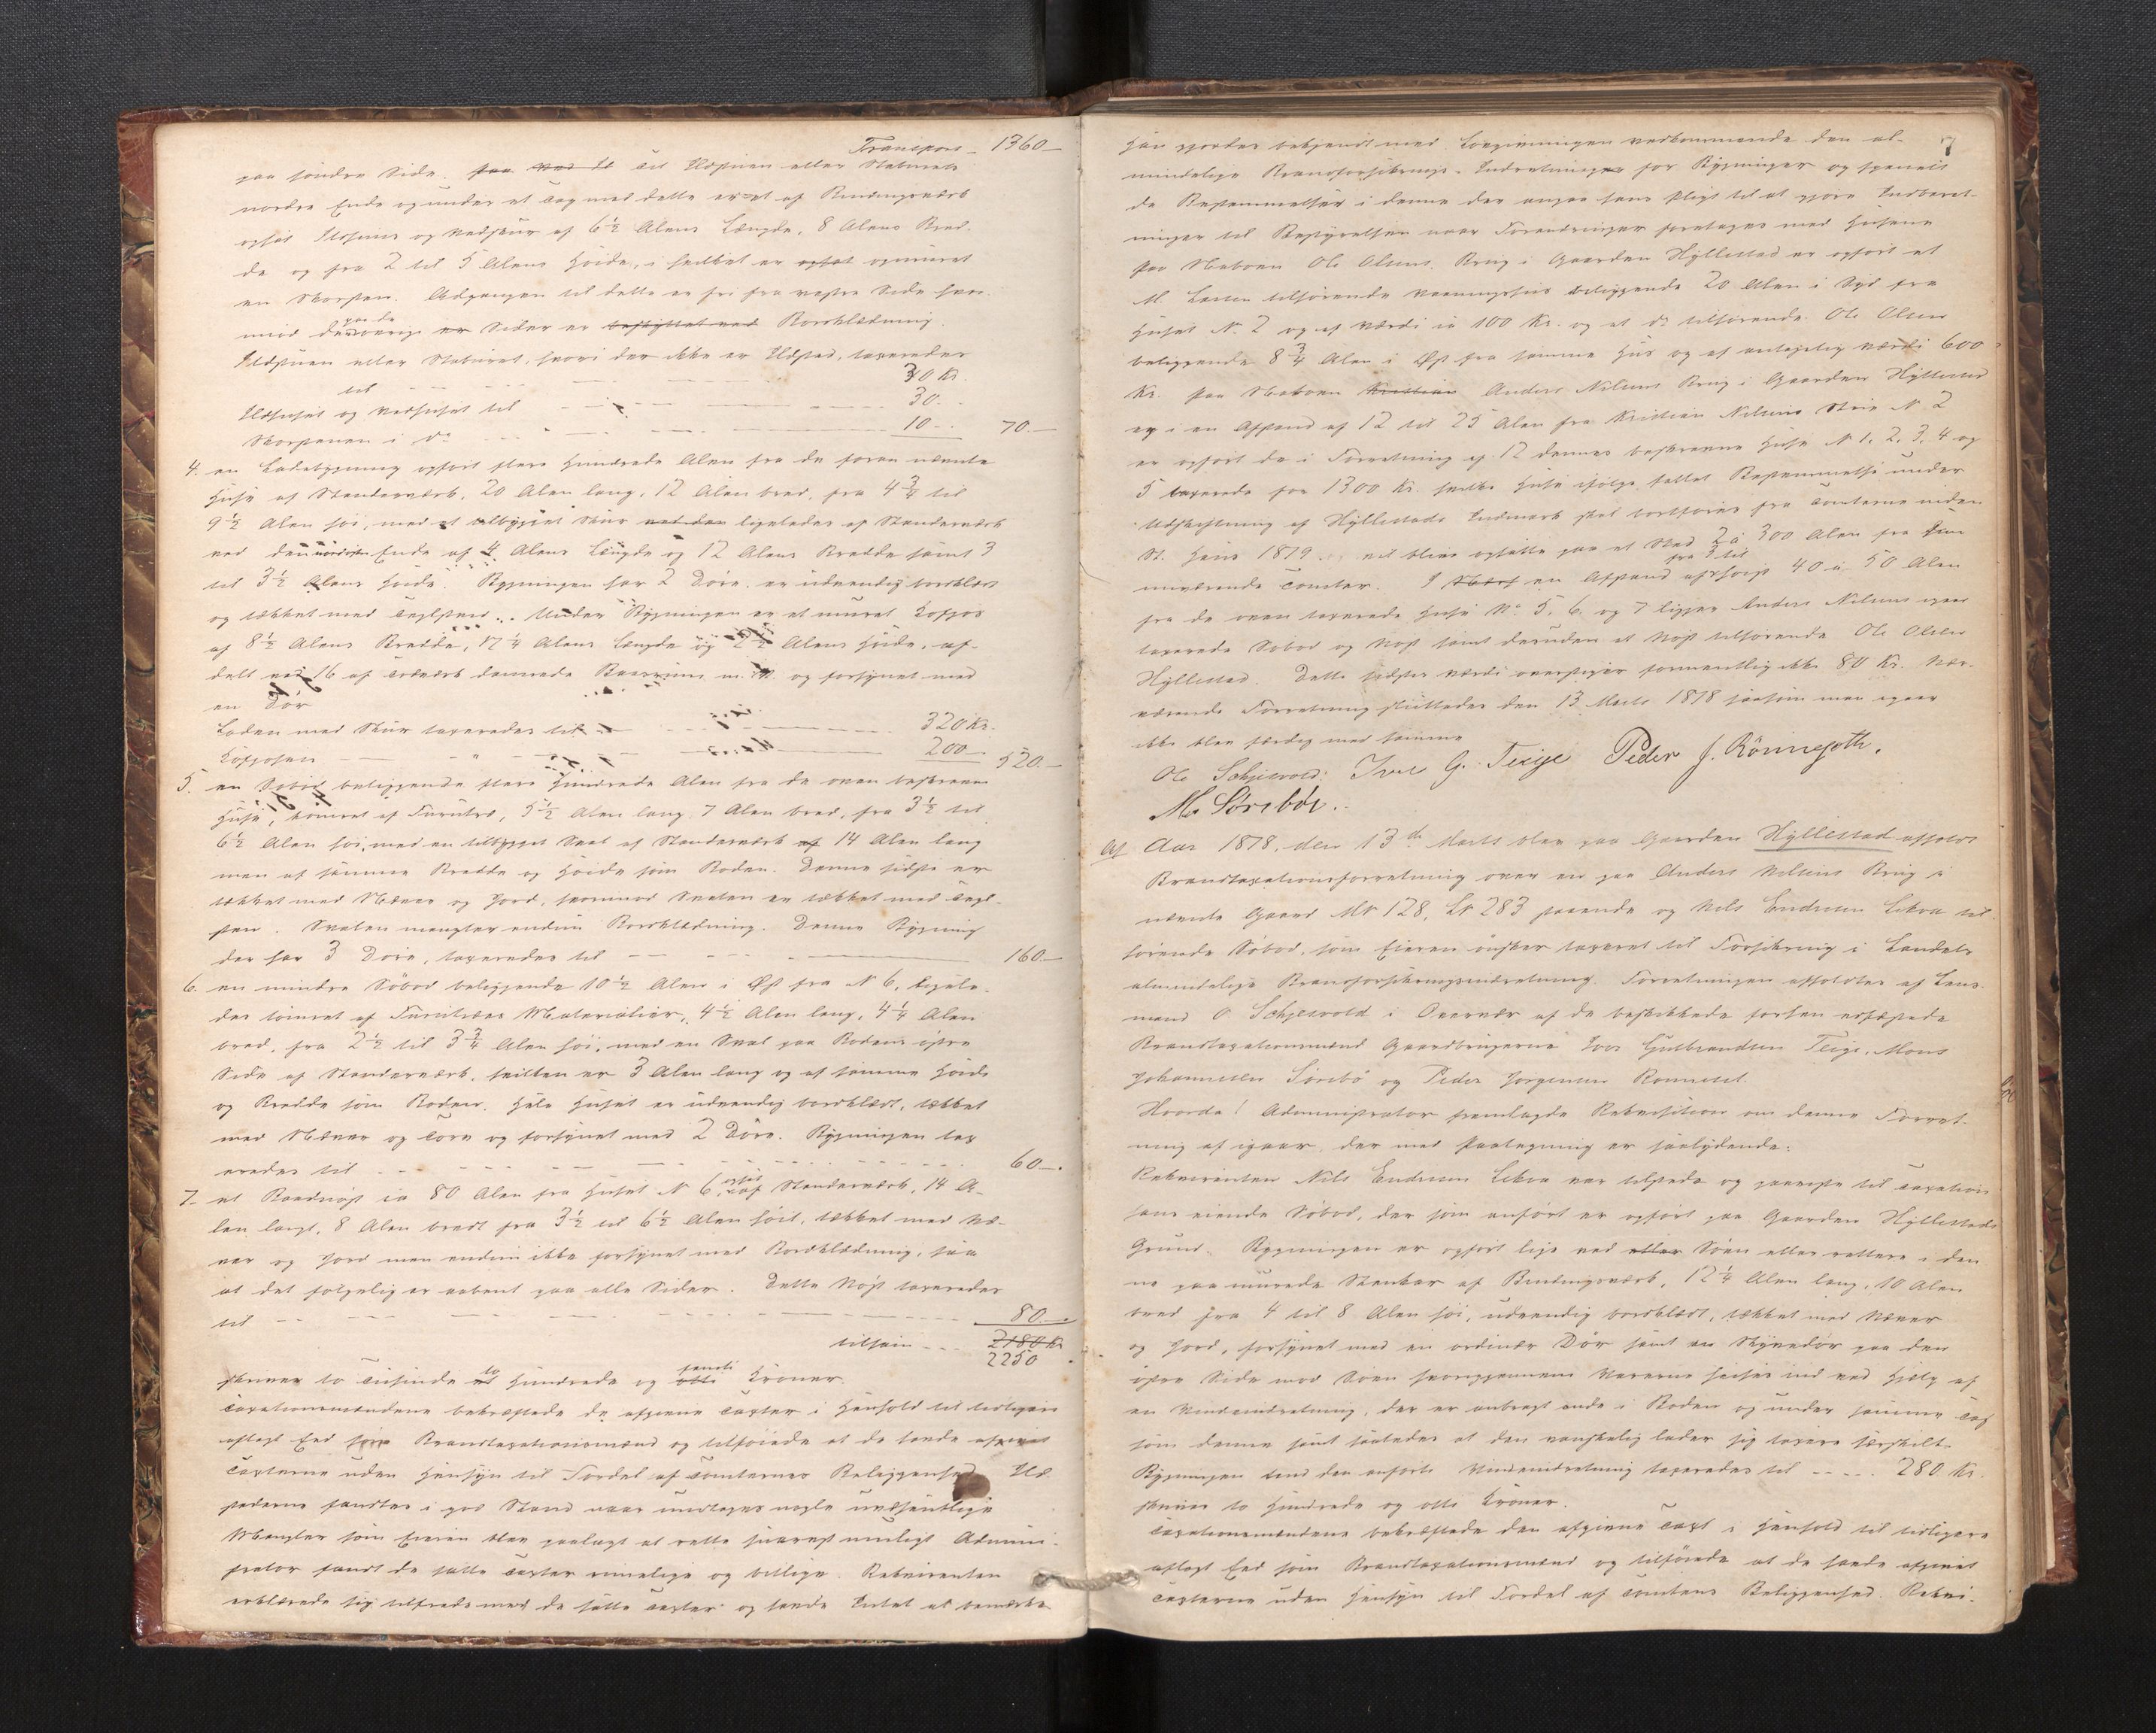 Transport – 1360 –
paa søndre Side. Til Ildhuset eller Staburets
nordre Ende og under et Tag med dette er et af Bindingsværk
opsat Ildhuus og Vedskuur af 6½ Alens Længde, 8 Alens Bred-
de og fra 2 til 5 Alens Høide, i hvilket er opsat opmuret
en Skorsten. Adgangen til dette er fri fra vestre Side hvor-
imod paa de øvrige Sider er beskyttet ved Bordklædning.
Ildhuset eller Staburet, hvori der ikke er Ildsted, taxeredes
til 30 Kr.
Ildhuset og Vedhuset til 30 –
Skorstenen i do 10 – 70. –
4. en Ladebygning opført flere Hundrede Alen fra de foran nævnte
Huse af Stenderværk, 20 Alen lang, 12 Alen bred, fra 4¾ til
9½ Alen høi, med et tilbygget Skur ved den ligeledes af Stenderværk
ved den nordre Ende af 4 Alens Længde og 12 Alens Bredde samt 3
til 3½ Alens Høide. Bygningen har 2 Døre, er udvendig bordklædt
og tækket med Teglsten. Under Bygningen er et muret Kofjøs
af 8½ Alens Bredde, 17¼ Alens Længde og 2½ Alens Høide, af-
delt ved 16 af Træværk dannede Baasrum m. M. og forsynet med
en Dør
Laden med Skur taxeredes til 320 Kr.
Kofjøsen " 200 – 520. –
5. en Søbod beliggende flere Hundrede Alen fra de oven beskrevne
Huse, tømret af Furutræ, 5½ Alen lang, 7 Alen bred, fra 3½ til
6½ Alen høi, med en tilbygget Sval af Stenderværk af 14 Alen lang
men af samme Bredde og Høide som Boden. Denne sidste er
tækket med Næver og Jord, hvorimod Svalen er tækket med Tegl-
sten. Svalen mangler endnu Bordklædning. Denne Bygning
der har 3 Døre, taxeredes til 160. –
6. en mindre Søbod beliggende 10½ Alen i Øst fra N 6, ligele-
des tømret af Furutræes Materialier, 4½ Alen lang, 4¼ Alen
bred, fra 2½ til 3¾ Alen høi, med en Sval paa Bodens øvre
Side af Stenderværk, hvilken er 3 Alen lang og af samme Høide
og Bredde som Boden. Hele Huset er udvendig bordklædt, tækket
med Næver og Torv og forsynet med 2 Døre. Bygningen tax
eredes til 60 –.
7. et Baadnøst ca 80 Alen fra Huset N 6, opsat af Stenderværk, 14 A-
len langt, 8 Alen bredt fra 3½ til 6½ Alen høit, tækket med Næ-
ver og Jord men endnu ikke forsynet med Bordklædning, saa
at det følgelig er aabent paa alle Sider. Dette Nøst taxeredes
til 80 –
tilsam 2180 Kr
2250
skriver to Tusinde et to Hundrede og otti femti Kroner.
Taxationsmændene bekræftede de afgivne Taxter i Henhold til tidligere
aflagt Eed som Brandtaxationsmænd og tilføiede at de havde afgivet
Taxterne uden Hensyn til Fordel af Tomternes Beliggenhed. Ild-
stederne fandtes i god Stand naar undtages nogle uvæsentlige
Mangler som Eieren blev paalagt at rette snarest muligt. Admini-
strator fandt de satte Taxter rimelige og billige. Rekvirenten
erklærede sig tilfreds med de satte Taxter og havde Intet at bemærke
7
Han gjordes bekjendt med Lovgivningen vedkommende den al-
mindelige Brandforsikrings-Indretninger for Bygninger og specielt
de Bestemmelser i denne der angaa hans Pligt til at gjøre Indberet-
ninger til Bestyrelsen naar Forandringer foretages med Husene
Paa Naboen Ole Olsens Brug i Gaarden Hyllestad er opført et
M. Larsen tilhørende Vaaningshus beliggende 20 Alen i Syd fra
Huset N. 2 og af Værdi ca 100 Kr. og et do tilhørende Ole Olsen
beliggende 8¾ Alen i Øst fra samme Hus og af antagelig Værdi 600
Kr. Paa Naboen Kristian Anders Nilsens Brug i Gaarden Hyllestad
og i en Afstand af 12 til 25 Alen fra Kristian Nilsens Huse N 2
er opført de i Forretning af 12 dennes beskrevne Huse N 1, 2, 3, 4 og
5 taxerede for 1300 Kr. hvilke Huse ifølge fattet Bestemmelse under
Udskiftning af Hyllestads Indmark skal bortføres fra Tomterne inden
St. Hans 1879 og vil blive opsatte paa et Sted 2 à 300 Alen fra sine
nuværende Tomter. I en Afstand af fra 3 til høist 40 à 50 Alen
fra de oven taxerede Huse No 5, 6 og 7 ligger Anders Nilsens igaar
taxerede Søbod og Nøst samt desuden et Nøst tilhørende Ole Olsen
Hyllestad. Dette sidstes Værdi overstiger formentlig ikke 80 Kr. Nær-
værende Forretning sluttedes den 13 Marts 1878 saasom man igaar
ikke blev færdig med samme
Ole Schjesvold. Iver G. Teige Peder J. Rönneseth.
M. Sørebøe.
Af Aar 1878, den 13de Marts blev paa Gaarden Hyllestad afholdt
Brandtaxationsforretning over en paa Anders Nilsens Brug i
nævnte Gaard MN 128, LN 283 staaende og Nils Endresen Eikra til-
hørende Søbod, som Eieren ønsker taxeret til Forsikring i Landets
almindelige Brandforsikringsindretning. Forretningen afholdtes af Lens-
mand O Schjesvold i Overvær af de beskikkede forhen edfæstede
Brandtaxationsmænd Gaardbrugerne Iver Gulbrandsen Teige, Mons
Johannessen Sørebø og Peder Jørgensen Rønneset.
Hvorda! Administrator fremlagde Rekvisition om denne Forret-
ning af igaar, der med Paategning er saalydende:
Rekvirenten Nils Endresen Eikra var tilstede og paaviste til Taxation
hans eiende Søbod, der som anført er opført paa Gaarden Hyllestads
Grund. Bygningen er opført lige ved eller Søen eller rettere i den-
ne paa murede Stenkar af Bindingsværk, 12¼ Alen lang, 10 Alen
bred fra 4 til 8 Alen høi, udvendig bordklædt, tækket med Næver
og Jord, forsynet med en ordinær Dør samt en Skyvedør paa den
øvre Side mod Søen hvorigjennem Varerne heises ind ved Hjælp af
en Vindeindretning, der er anbragt inde i Boden og under samme Tag
som denne samt saaledes at den vanskelig lader sig taxere særskilt.
Bygningen med den anførte Vindeindretning taxeredes til 280 Kr.
skriver to Hundrede og otti Kroner.
Taxationsmændene bekræftede den afgivne Taxt i Henhold til tidligere
aflagt Eed som Brandtaxationsmænd og tilføiede at de havde afgivet
Taxterne uden Hensyn til Fordel af Tomtens Beliggenhed. Rekvi-